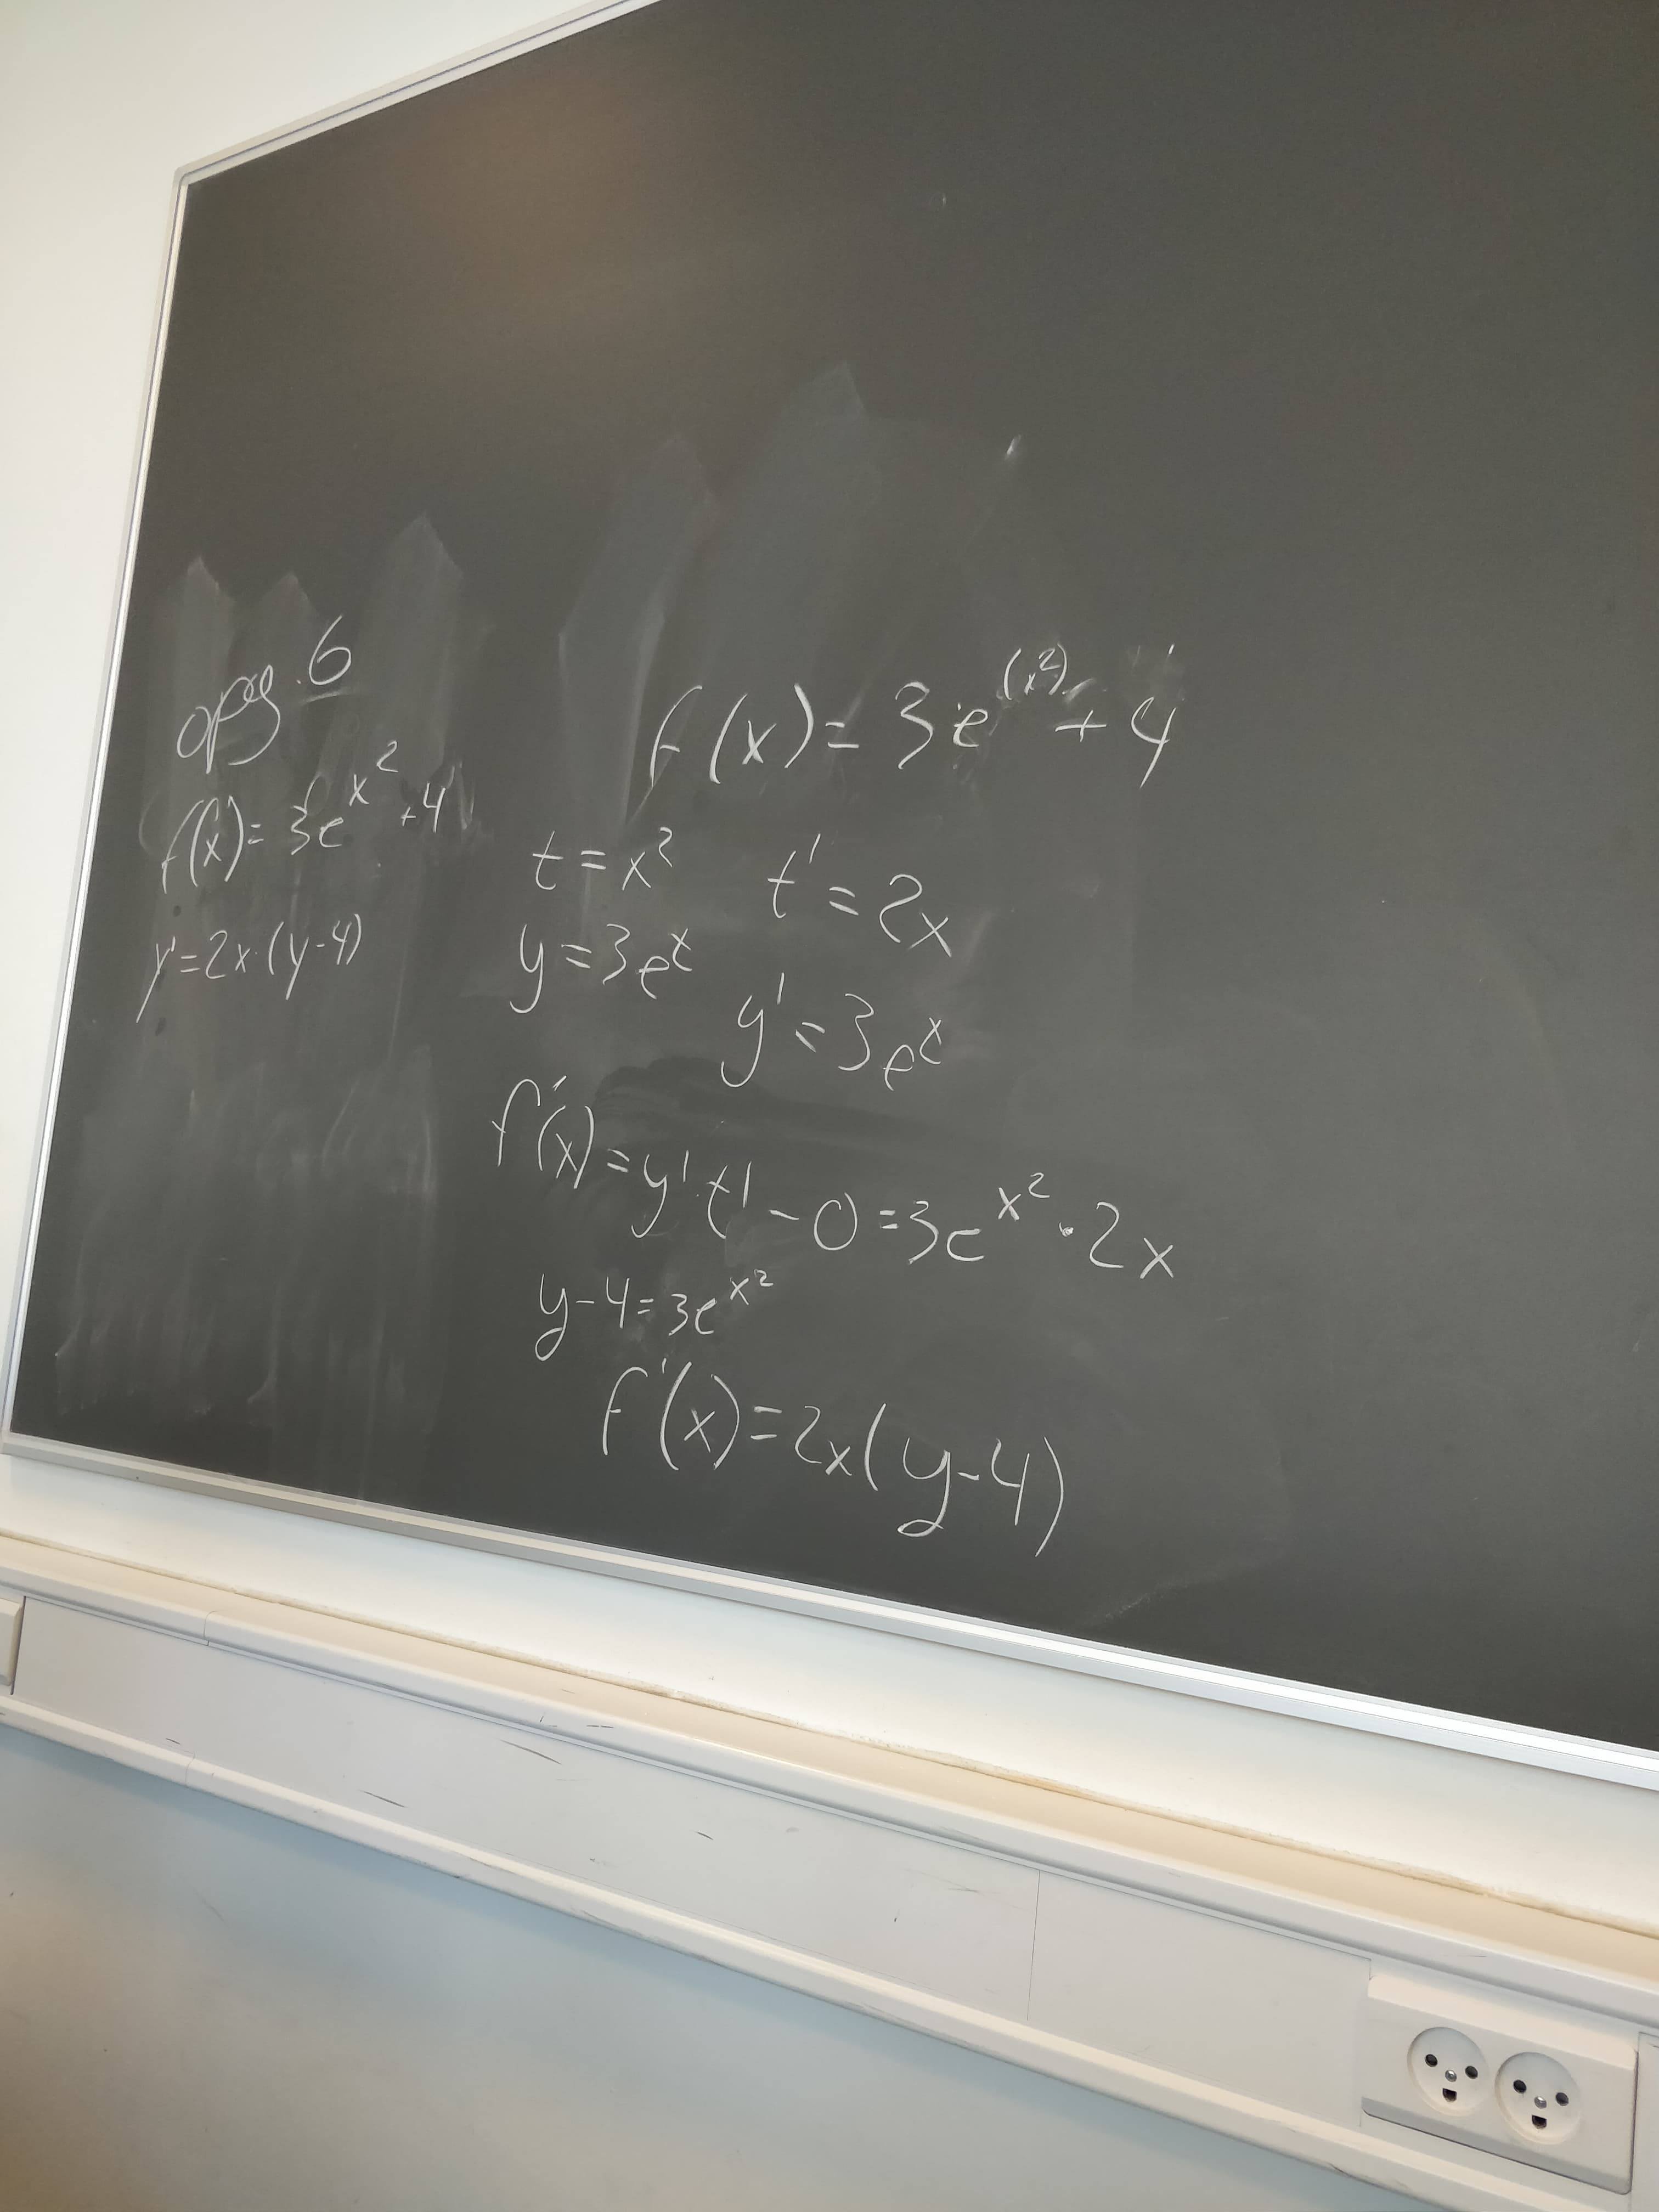 opg. 6
f(x) = 3e^x² + 4
y' = 2x·(y-4)
f(x) = 3e^(x²) + 4
t = x² t' = 2x
y = 3e^t y' = 3e^t
f'(x) = y'·t' - 0 = 3e^x² · 2x
y-4 = 3e^x²
f'(x) = 2x(y-4)